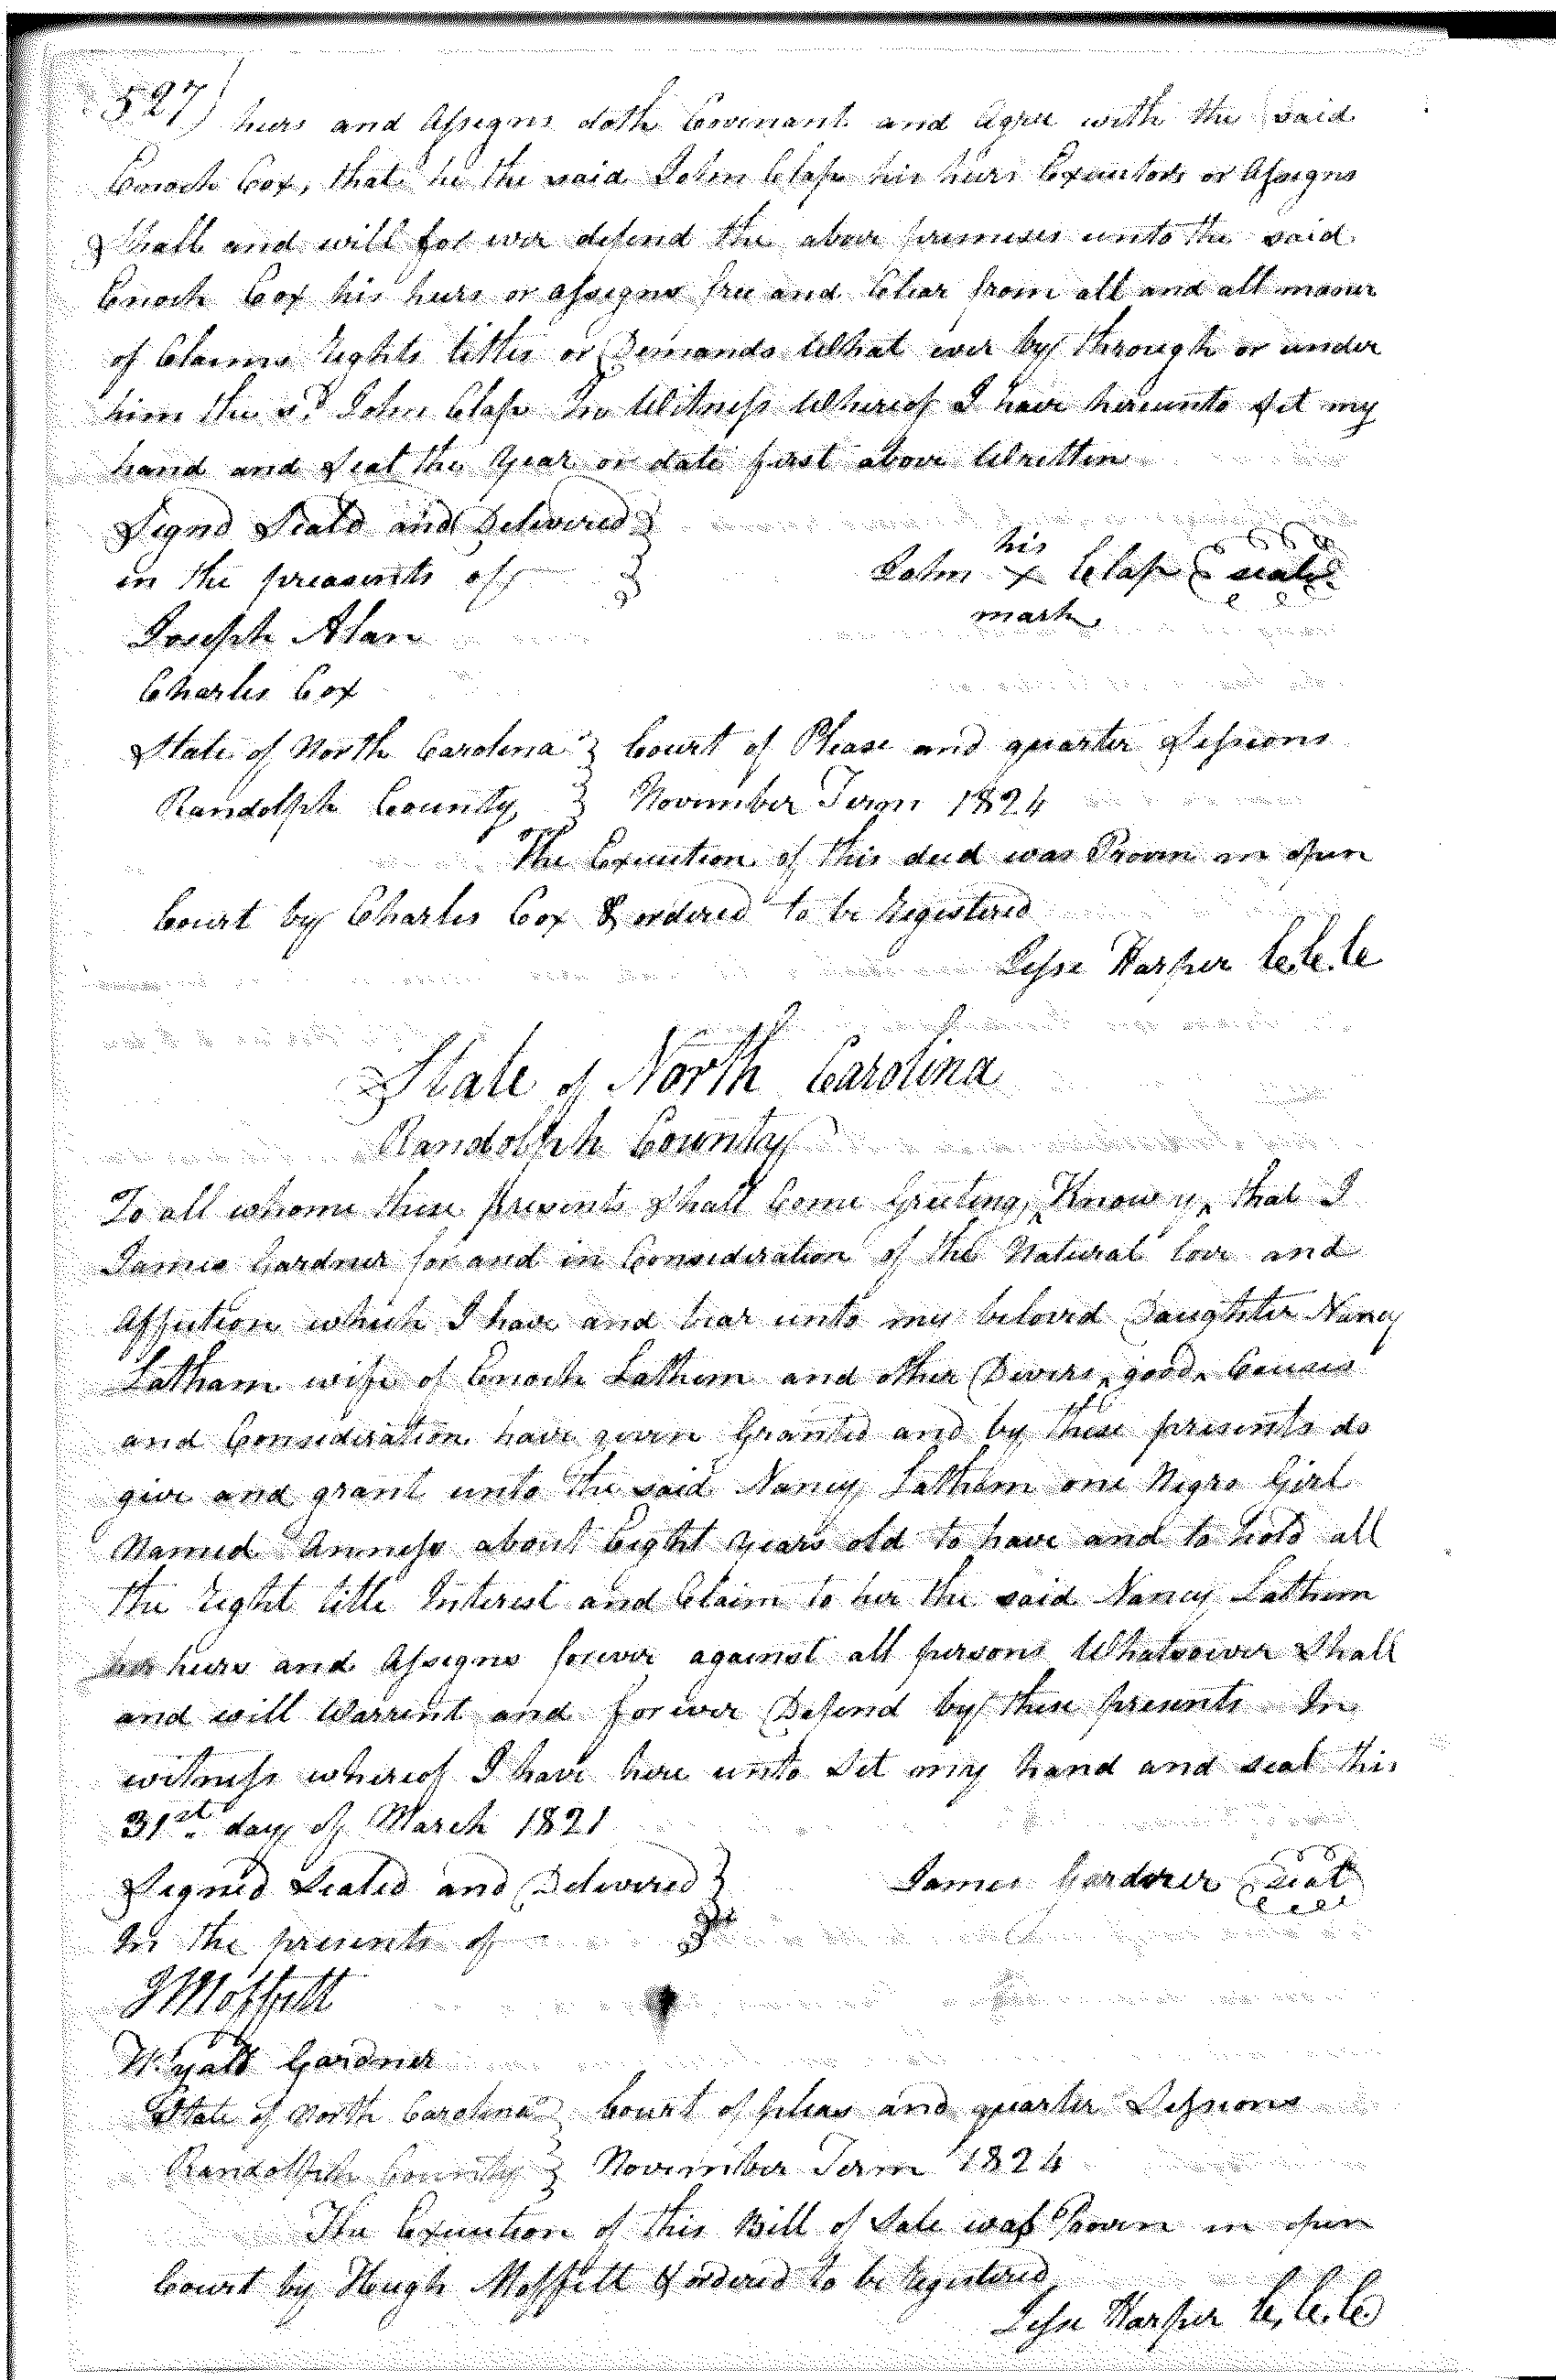 527) heirs and Assigns doth Covenant and Agree with the said
Enoch Cox, that he the said John Class his heirs Executors or Assigns
Shall and will for ever defend the above premises unto the said
Enoch Cox his heirs or assigns free and Clear from all and all maner
of Claims Rights titles or Demands What ever by through or under
him the sd John Class In Witness Whereof I have hereunto Set my
hand and Seal the Year or date first above Written
Signd Seald and Delivered }
in the preasents of }
his
John x Class seal
mark
Joseph Alan
Charles Cox
State of North Carolina } Court of Please and quarter Sessions
Randolph County } November Term 1824
The Execution of this deed was Proven in open
Court by Charles Cox & ordered to be Registered
Jesse Harper C.C.C
State of North Carolina
Randolph County
To all whome these presents Shall Come Greeting, Know ye, that I
James Gardner for and in Consideration of the Natural love and
Affection which I have and bear unto my beloved Daughter Nancy
Latham wife of Enoch Lathem and other Divers good Causes
and Consideration have given Granted and by these presents do
give and grant unto the said Nancy Lathem one Negro Girl
Named Anness about Eight years old to have and to hold all
the Right title Interest and Claim to her the said Nancy Lathem
her heirs and Assigns forever against all persons Whatsoever Shall
and will Warrent and forever Defend by these presents In
witness whereof I have here unto Set my hand and seal this
31st day of March 1821
Signed Sealed and Delivered }
In the presents of }
James Gardner seal
Moffitt
Wyatt Gardner
State of North Carolina } Court of pleas and quarter Sessions
Randolph County } November Term 1824
The Execution of this Bill of Sale was proven in open
Court by Hugh Moffitt & ordered to be Registered
Jesse Harper C.C.C